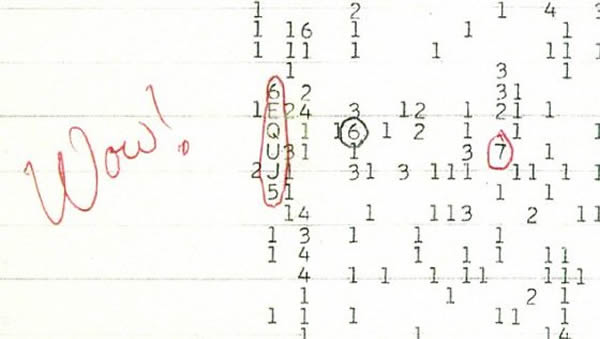 1 2 1 4 3
1 16 1 1 1
1 11 1 1 11 1
1 3 1
6 2 31
1 E 24 3 12 1 21 1
Wow!
Q 1 16 1 2 1 1 1
U31 1 3 7 1
2J 31 3 111 11 1 1
51 1 1
14 1 113 2 11
1 3 1 1 1
1 4 1 1 1 11
4 1 1 1 11 111
1 1 2 1
1 1 1 11 1
1 1 14